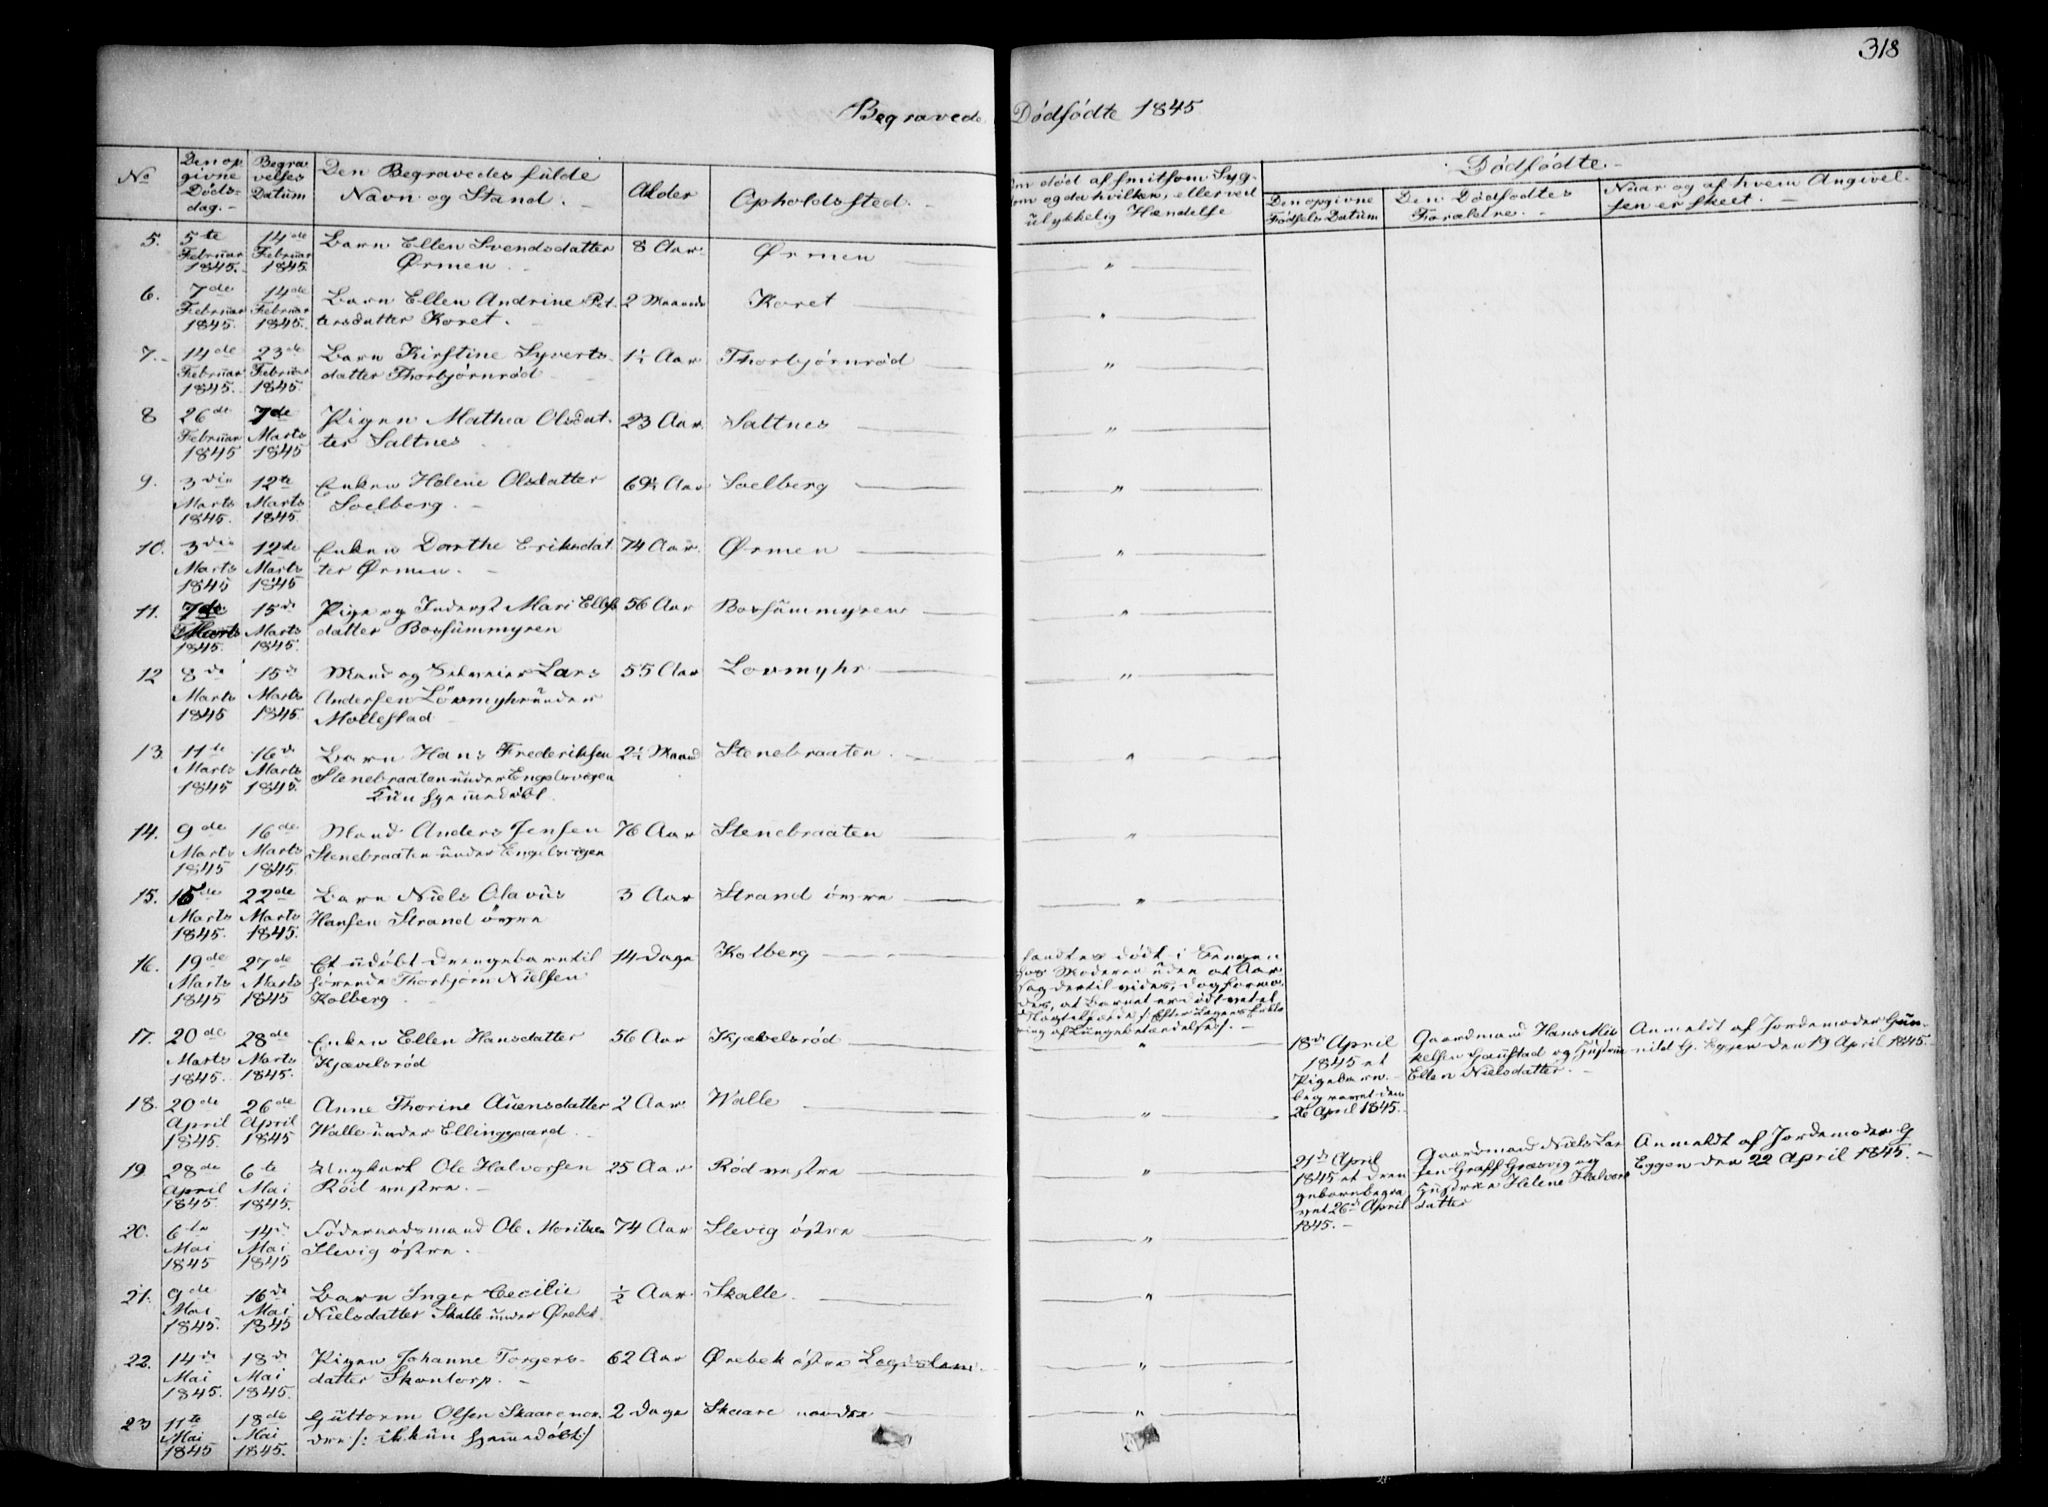 318
Begravede Dødfødte 1845
No
Den op
givne
Døds-
dag.
Begra
velses
Datum
Den Begravedes fulde
Navn og Stand.
Alder
Opholdssted.
Om død af smitsom Syg-
dom og da hvilken, eller ved
ulykkelig Hændelse
Dødfødte.
Den opgivne
Fødsels Datum
Den Dødfødtes
Forældre.
Naar og af hvem Angivel-
sen er skeet.
5. 5te Februar 1845. 14de Februar 1845. Barn Ellen Svendsdatter
Ørmen 8 Aar Ørmen "
6. 7de Februar 1845. 14de Februar 1845. Barn Ellen Andrine Pet-
tersdatter Koret. 2 Maaneder Koret "
7. 14de Februar 1845. 23de Februar 1845. Barn Kirstine Syverts-
datter Thorbjørnrød 1½ Aar Thorbjørnrød "
8 26de Februar 1845 7de Marts 1845 Pigen Mathea Olsdat-
ter Saltnes 23 Aar Saltnes "
9. 3die Marts 1845. 12te Marts 1845. Enken Helene Olsdatter
Soelberg. 69½ Aar Soelberg "
10. 3die Marts 1845 12te Marts 1845 Enken Dorthe Eriksdat-
ter Ørmen. 74 Aar. Ørmen "
11. 7de Marts 1845. 15de Marts 1845. Pige og Inderst Mari Ellefs
datter Bossummyren 56 Aar Bossummyren "
12 8de Marts 1845 15de Marts 1845. Mand og Lars
Andersen Løvmyhr under
Mollestad 55 Aar Lovmyhr "
13. 11te Marts 1845 16de Marts 1845. Barn Hans Frederiksen
Stenebraaten under Engelsvigen
kun hjemmedøbt. 2½ Maaned Stenebraaten. "
14. 9de Marts 1845 16de Marts 1845. Mand Anders Jensen
Stenebraaten under Engelsvigen 76 Aar Stenebraaten "
15. 15de Marts 1845. 22de Marts 1845. Barn Niels Olavus
Hansen Strand övre 3 Aar Strand övre "
16. 19de Marts 1845 27de Marts 1845 Et udøbt Drengebarn til
hörende Thorbjørn Nielsen
Kolberg 14 Dage Kolberg fandtes dødt i Sengen
hos Moderen uden at Aar
sag dertil vides, dog formo
des, at Barnet er dødt ved et
Slagtilfælde /: Efter Lægens Erklæ
ring af Lungebetændelse :/.
17. 20de Marts 1845. 28de Marts 1845. Enken Ellen Hansdatter
Kjævelsrød 56 Aar Kjævelsrød "
18de April
1845 et
Pigebarn.
begravet den
26 April 1845.
Gaardmand Hans Mik
kelsen Gaustad og Hustru
Ellen Nielsdatter.
Anmeldt af Jordemoder Gun-
nild G. Eggen den 19 April 1845.
18. 20de April 1845. 26de April 1845 Anne Thorine Auensdatter
Walle under Ellinggaard. 2 Aar Walle "
19 28de April 1845. 6te Mai 1845. Ungkarl Ole Halvorsen
Rød vestre. 25 Aar Rød vestre "
21de April
1845 et Dren
gebarn begra
vet 26de April
1845.
Gaardmand Niels Lar
sen Græsvig og
Hustru Helene Halvors
datter
Anmeldt af Jordemoder G
Eggen den 22 April 1845.
20. 6te Mai 1845 14de Mai 1845 Föderaadsmand Ole Moritsen
Slevig østre. 74 Aar Slevig østre "
21. 9de Mai 1845. 16de Mai 1845 Barn Inger Cecilie
Nielsdatter Skalle under Ørebek. ½ Aar Skalle. "
22. 14de Mai 1845. 18de Mai 1845. Pigen Johanne Torgers-
datter Skontorp. 62 Aar Ørebek østre Lægdslem. "
23 11te Mai 1845 18de Mai 1845. Guttorm Olsen Skaare nor-
dre /: ikkun hjemmedøbt :/ 2 Dage Skaare nordre "